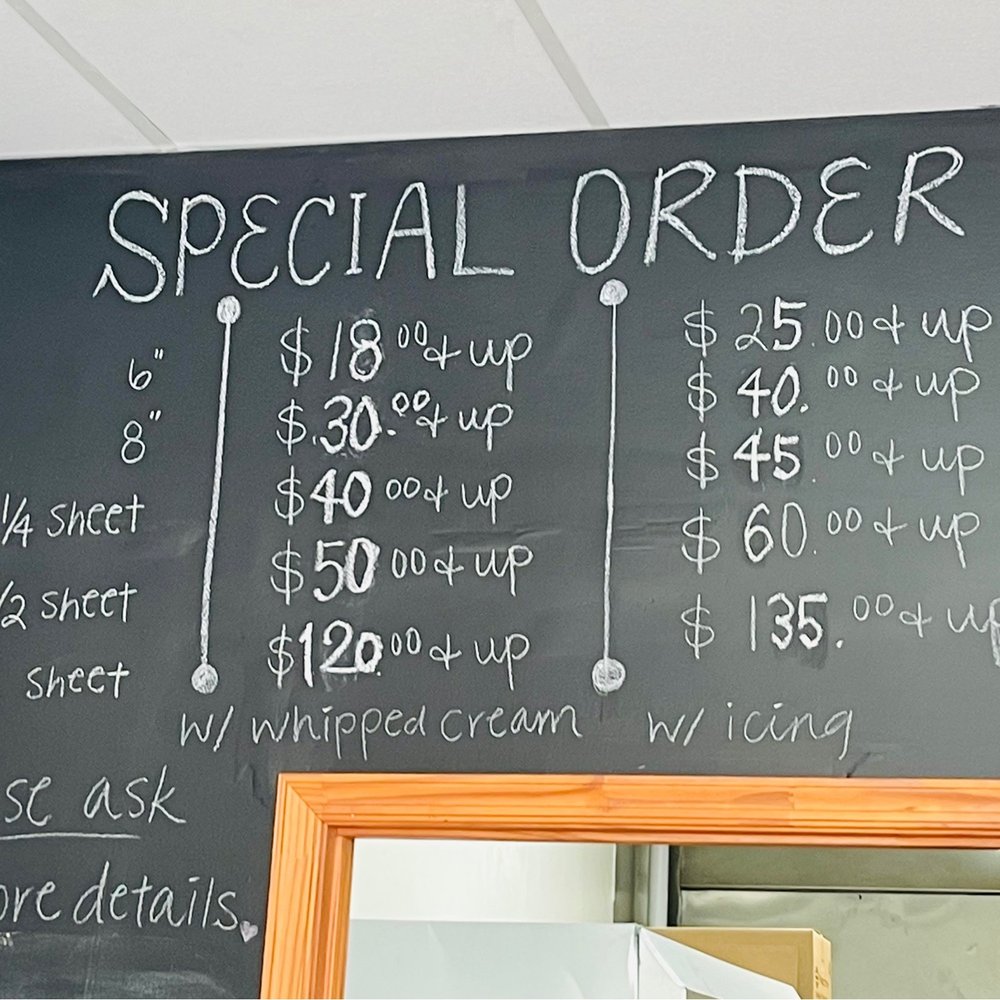 SPECIAL ORDER
6" $18.00 & up $25.00 & up
8" $.30.00 & up $40.00 & up
1/4 sheet $40 00 & up $45.00 & up
/2 sheet $50.00 & up $60.00 & up
sheet $120.00 & up $135.00 & up
w/ whipped cream w/ icing
se ask
ore details.